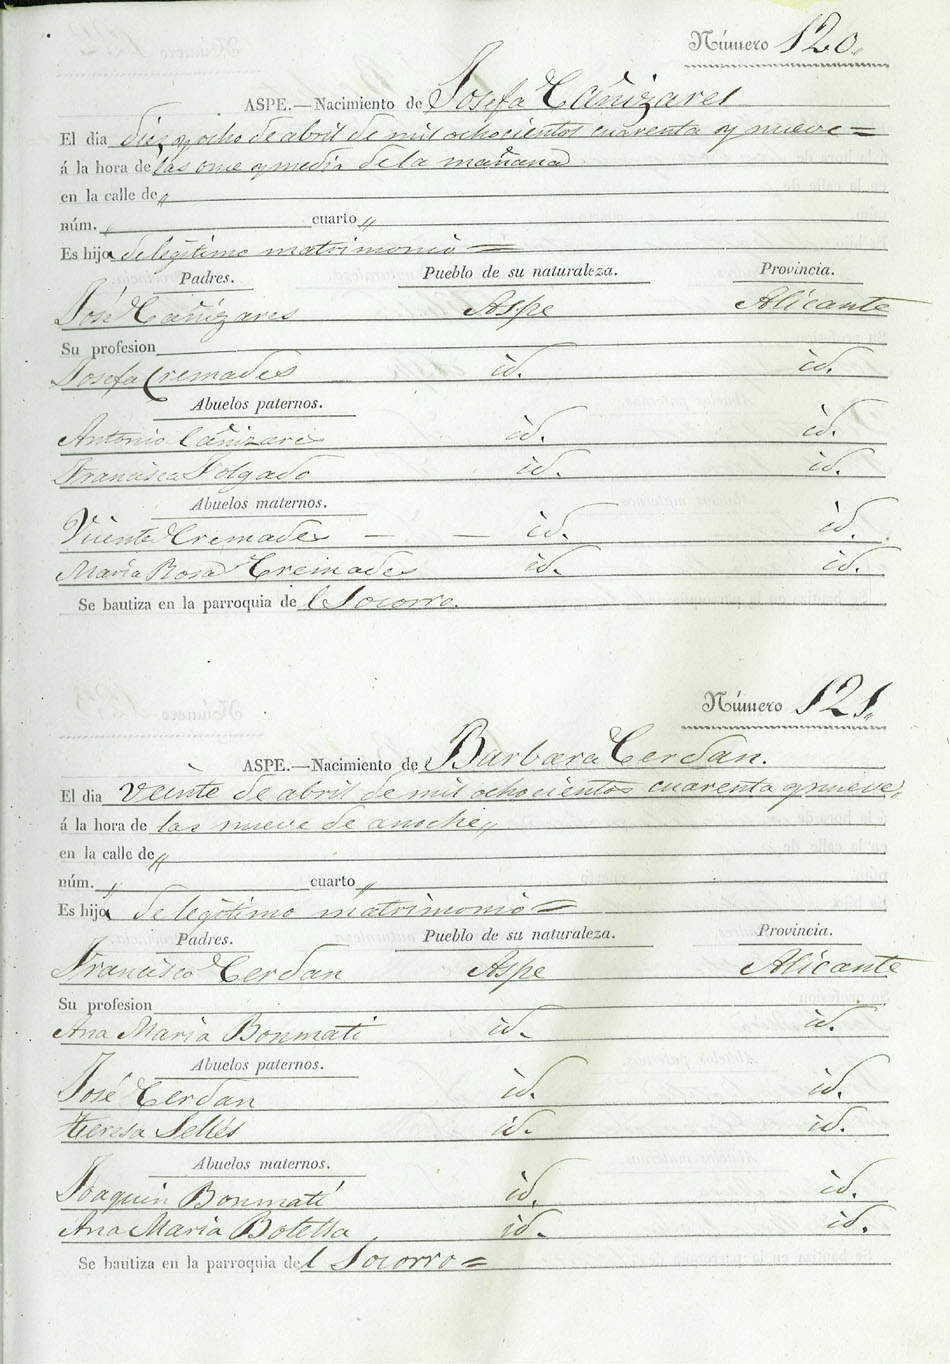 Número 120.
ASPE.—Nacimiento de Josefa Cañizares
El dia diez y ocho de abril de mil ochocientos cuarenta y nueve =
á la hora de las once y media de la mañana
en la calle de „
núm. „ cuarto „
Es hija de legítimo matrimonio =
Padres. Pueblo de su naturaleza. Provincia.
José Cañizares Aspe Alicante
Su profesion
Josefa Cremades id. id.
Abuelos paternos.
Antonio Cañizares id. id.
Francisca Folgado id. id.
Abuelos maternos.
Vicente Cremades — — id. id.
Maria Rosa Cremades id. id.
Se bautiza en la parroquia de l Socorro.
Número 121.
ASPE.—Nacimiento de Barbara Cerdan.
El dia veinte de abril de mil ochocientos cuarenta y nueve „
á la hora de las nueve de anoche „
en la calle de „
núm. „ cuarto „
Es hija de legitimo matrimonio =
Padres. Pueblo de su naturaleza. Provincia.
Francisco Cerdan Aspe Alicante
Su profesion
Ana Maria Bonmati id. id.
Abuelos paternos.
José Cerdan id. id.
Teresa Sellés id. id.
Abuelos maternos.
Joaquin Bonmati id. id.
Ana Maria Botella id. id.
Se bautiza en la parroquia de l Socorro =